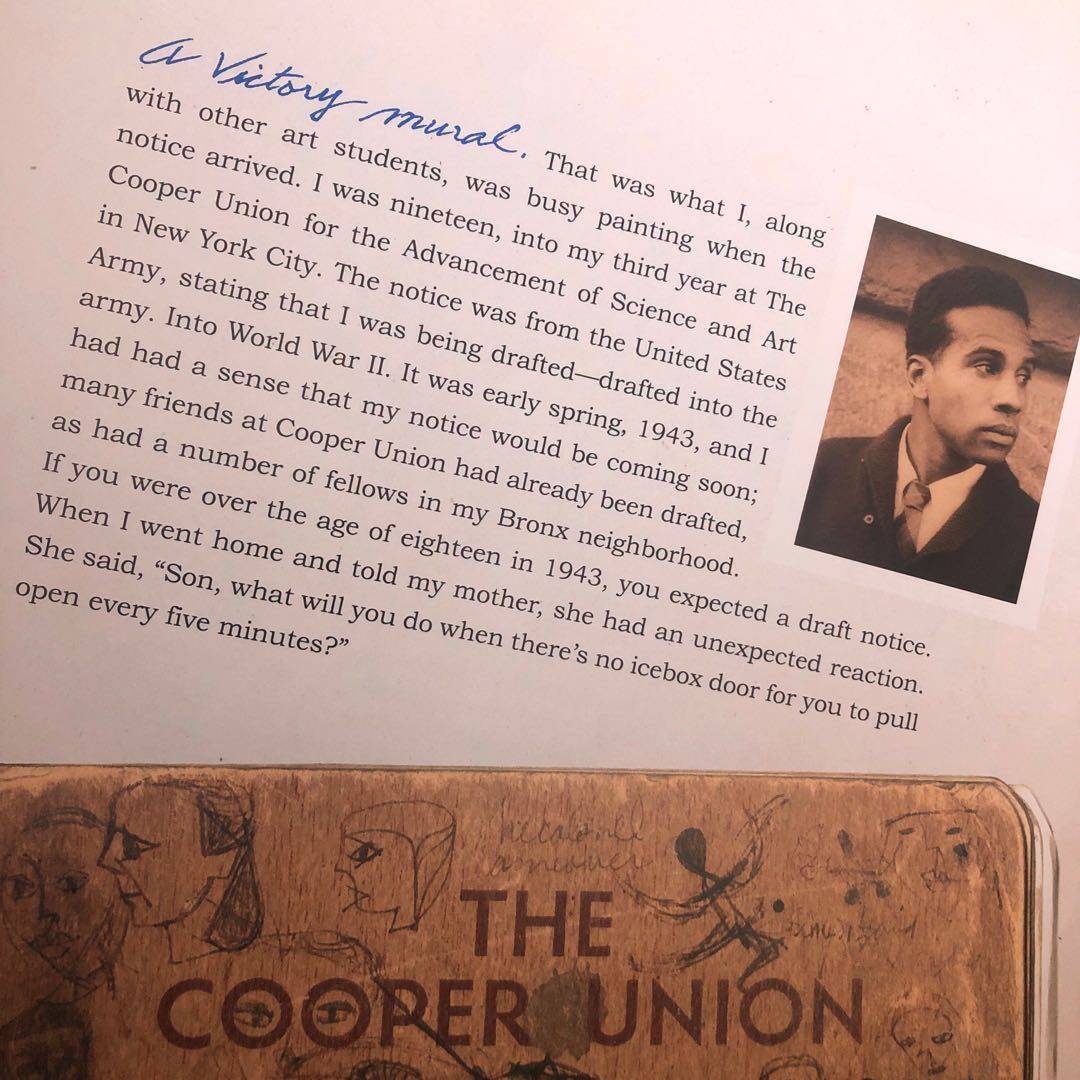 a Victory mural. That was what I, along
with other art students, was busy painting when the
notice arrived. I was nineteen, into my third year at The
Cooper Union for the Advancement of Science and Art
in New York City. The notice was from the United States
Army, stating that I was being drafted—drafted into the
army. Into World War II. It was early spring, 1943, and I
had had a sense that my notice would be coming soon;
many friends at Cooper Union had already been drafted,
as had a number of fellows in my Bronx neighborhood.
If you were over the age of eighteen in 1943, you expected a draft notice.
When I went home and told my mother, she had an unexpected reaction.
She said, “Son, what will you do when there’s no icebox door for you to pull
open every five minutes?”
THE
COOPER UNION